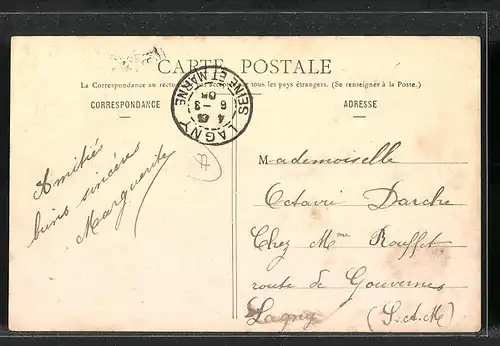 CARTE POSTALE
La Correspondance au recto pas tous les pays étrangers. (Se renseigner à la Poste)
CORRESPONDANCE
ADRESSE
LAGNY SEINE ET MARNE
6 - 3
05
Amitiés
biens sincères
Marguerite
Mademoiselle
Octavie Darche
Chez Mme Rouffet
route de Gouvernes
Lagny
(S.-A.-M)